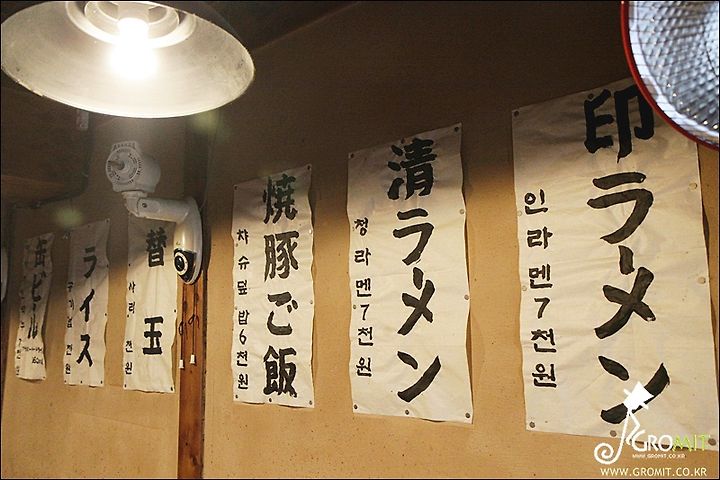 印ラーメン
인라멘7천원
清ラーメン
청라멘7천원
焼豚ご飯
차슈덮밥6천원
替玉
사리 천원
ライス
공기밥 천원
缶ビール
GROMIT
WWW.GROMIT.CO.KR
WWW.GROMIT.CO.KR